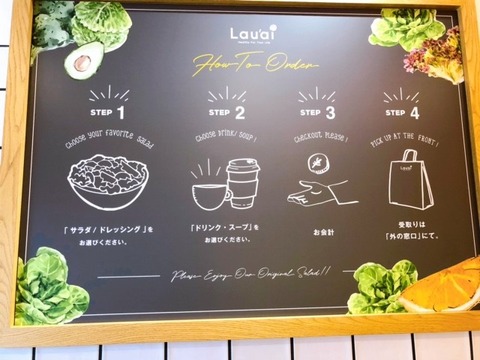 Lau'ai
How To Order
STEP 1
Choose your favorite salad
「サラダ / ドレッシング」を
お選びください。
STEP 2
Choose drink/soup!
「ドリンク・スープ」を
お選びください。
STEP 3
Checkout please!
お会計
STEP 4
PICK UP AT THE FRONT!
受取りは
「外の窓口」にて。
Please Enjoy Our Original Salad!!